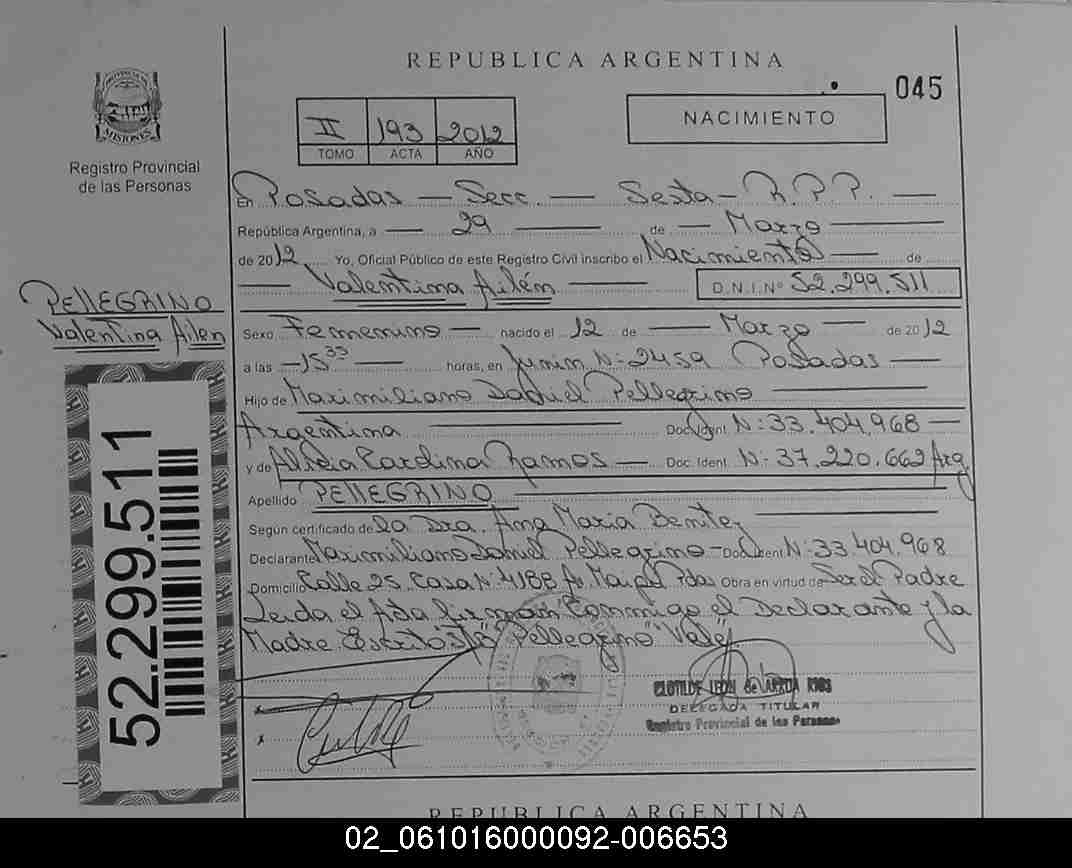 REPUBLICA ARGENTINA
045
II 193 2012
TOMO ACTA AÑO
NACIMIENTO
PROVINCIA DE
MISIONES
Registro Provincial
de las Personas
En Posadas — Secc. — Sexta — R.P.P. —
República Argentina, a — 29 — de — Marzo —
de 2012 Yo, Oficial Público de este Registro Civil inscribo el Nacimiento — de
— Valentina Ailén — D.N.I. Nº 52.299.511
PELLEGRINO
Valentina Ailen
Sexo Femenino — nacido el 12 de — Marzo — de 2012
a las — 15 35 — horas, en Junin N: 2459 Posadas —
Hijo de Maximiliano Daniel Pellegrino
Argentina — Doc. Ident. N: 33.404.968 —
y de Ramos — Doc. Ident. N: 37.220.662 Arg
Apellido PELLEGRINO
Según certificado de la Dra. Ana Maria Benitez
Declarante Maximiliano Daniel Pellegrino — Doc. Ident N: 33.404.968
Domicilio Calle 25 Casa Nº 4188 Av Maipú Pdas Obra en virtud de Ser el Padre
Leida el Acta firman Conmigo el Declarante y la
Madre. "Pellegrino" Vale
52.299.511
CLOTILDE LEON de RIOS
DELEGADA TITULAR
Registro Provincial de las Personas
REPUBLICA ARGENTINA
02_061016000092-006653